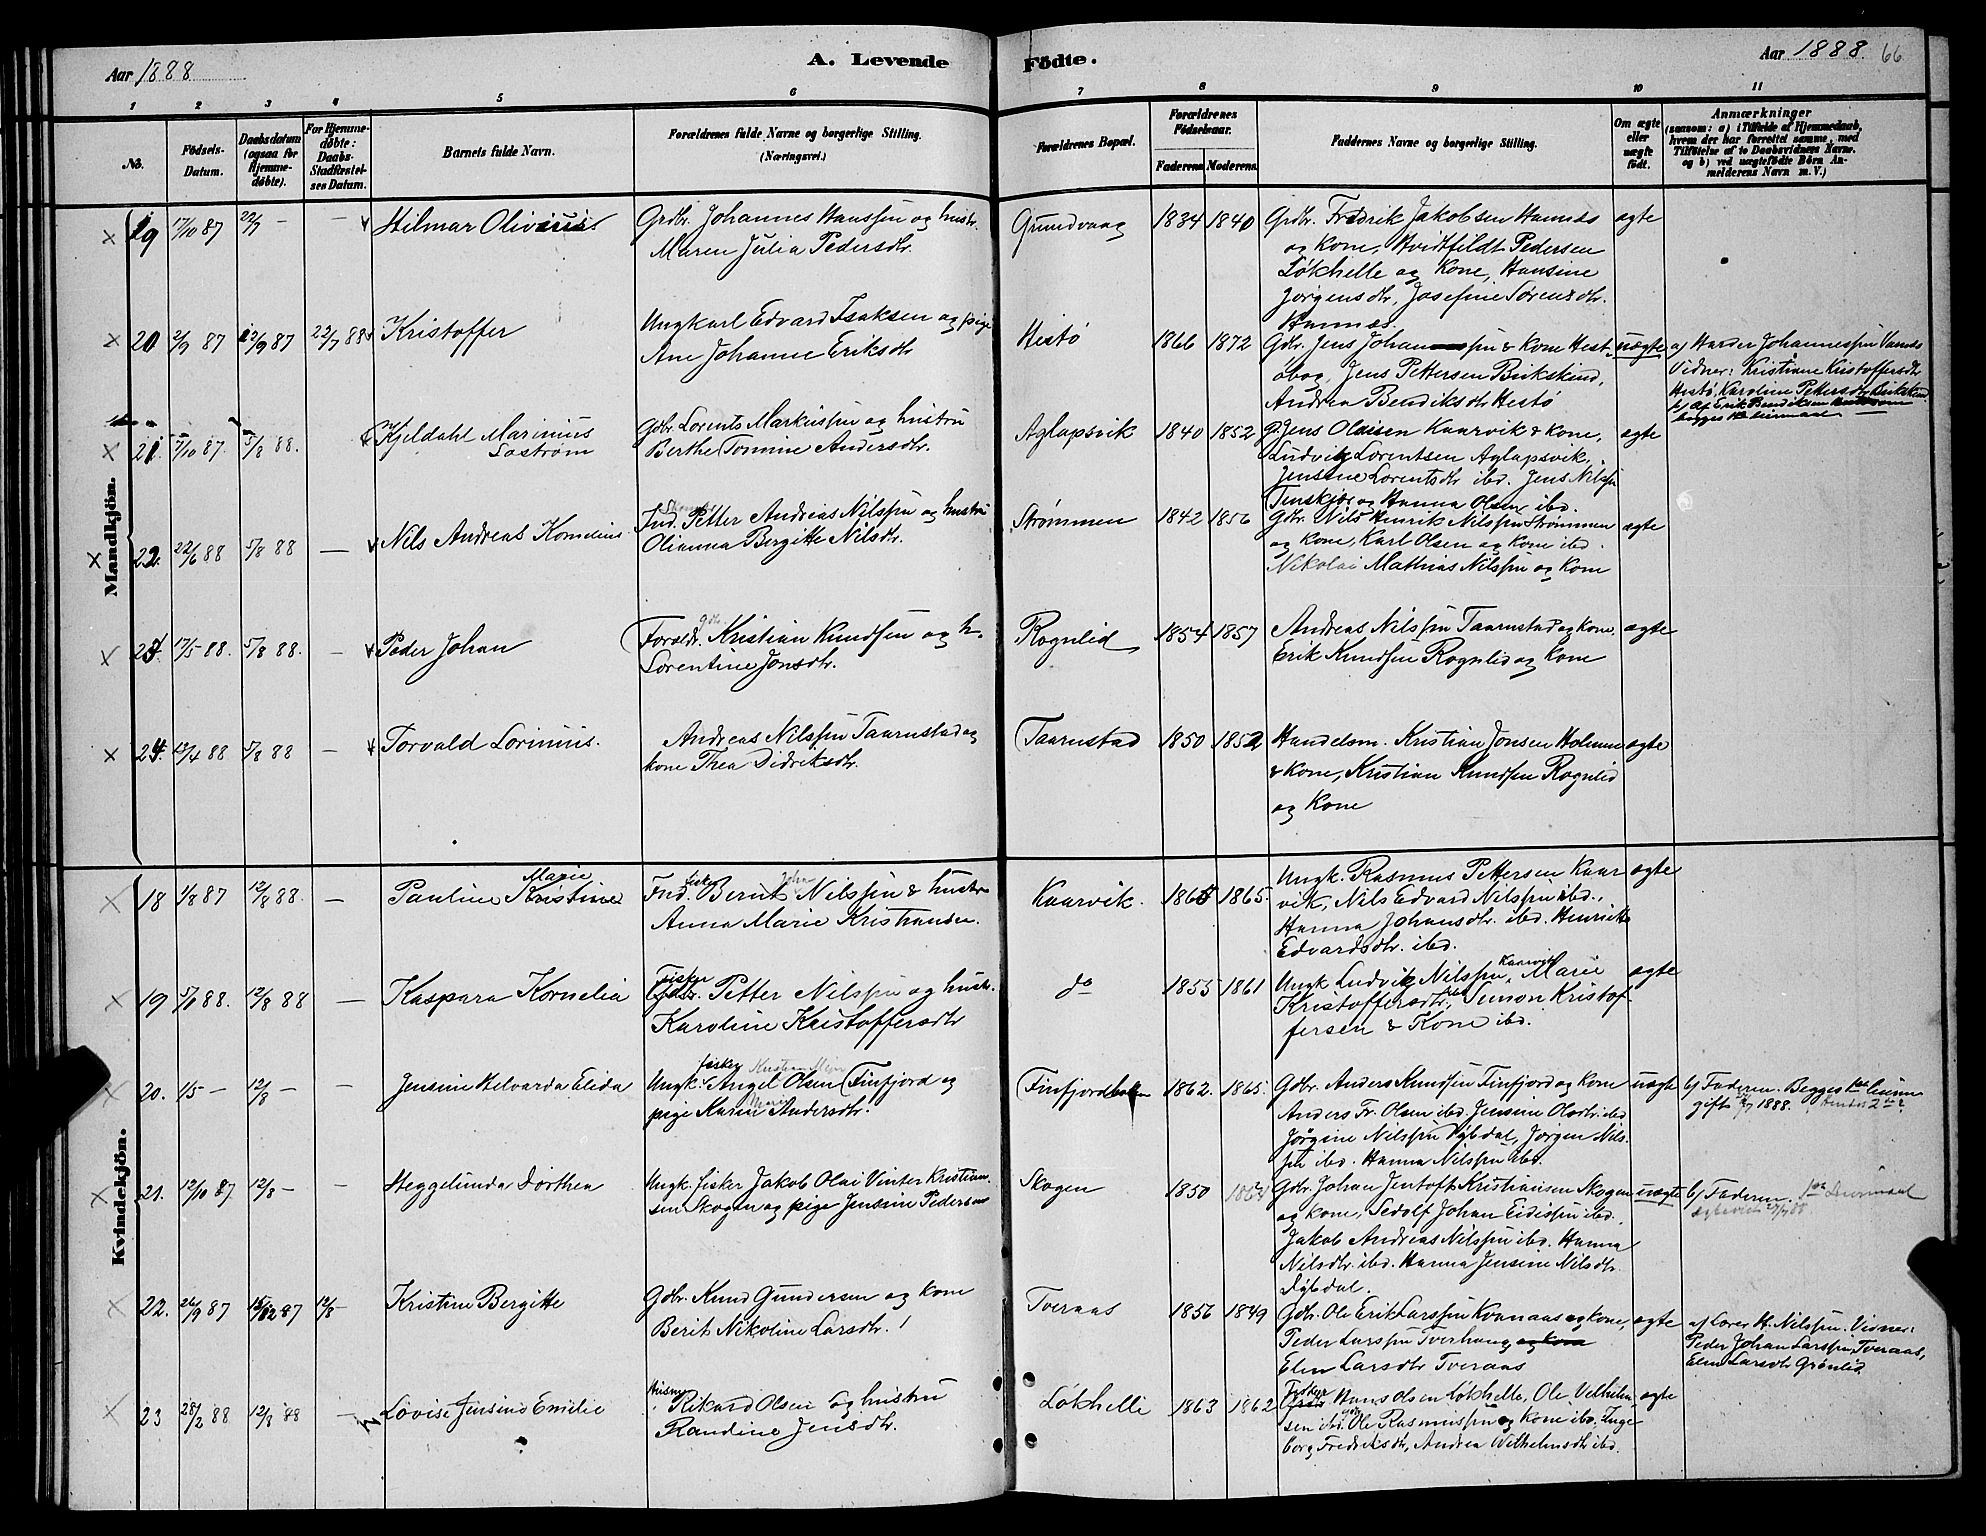 Aar 1888
A. Levende
Födte.
Aar 1888. 66
1 2 3 4 5 6 7 8 9 10 11
No.
Födsels-Datum.
Daabsdatum (ogsaa for Hjemme-döbte).
For Hjemme-döbte: Daabs-Stadfæstel-ses Datum.
Barnets fulde Navn.
Forældrenes fulde Navne og borgerlige Stilling. (Næringsvei.)
Forældrenes Bopæl.
Forældrenes Födselsaar.
Faderens. Moderens.
Faddernes Navne og borgerlige Stilling.
Om ægte eller uægte födt.
Anmærkninger (saasom: a) i Tilfælde af Hjemmedaab, hvem der har forrettet samme, med Tilföielse af to Daabsvidners Navne, og b) ved uægtefödte Börn Anmelderens Navn m. V.)
Mandkjön.
19 17/10 87 22/7 – – Hilmar Olivius
Grdbr. Johannes Hanssen og hustr.
Maren Julia Pedersdtr.
Grundvaag 1834 1840
Grdbr. Fredrik Jakobsen Hannæs
og Kone, Hvidtfeldt Pedersen
Løkhelle og Kone, Hansine
Jørgensdtr, Josefine Sørensdtr.
Hannæs.
ægte
20 2/9 87 12/9 87 22/7 88 Kristoffer
Ungkarl Edvard Isaksen og pige
Ane Johanne Eriksdtr
Hestø 1866 1872
Gdbr. Jens Johanssen & Kone Hest-
obog, Jens Pettersen Bukskind,
Andrea Bendiksdtr Hestø
uægte
a) Harder Johannessen Vands
Vidner: Kristiane Kristoffersdtr
Hestø, Karoline Pettersdtr Bukskind
b) af Erik Bendiksen
begges 1ste leiermaal
21. 7/10 87. 5/8 88. Kjeldahl Marinius
Sostrøm
Gdbr Lorents Markussen og hustru
Berthe Tomine Andersdtr.
Aglapsvik 1840 1852
G. Jens Olaisen Kaarvik & kone,
Ludvig Lorentsen Aglapsvik,
Jensine Lorentsdtr ibd. Jens Nilssen
Tenskjær og Hanna Olsen ibd.
ægte
22. 22/6 88 5/8 88 – Nils Andreas Kornelius
Ind. Petter Andreas Nilssen og hustru
Olianna Bergitte Nilsdtr.
Strømmen 1842 1856
Gdbr. Nils Henrik Nilssen Strømmen
og Kone, Karl Olsen og Kone ibd.
Nikolai Mathias Nilssen og Kone
ægte
23. 17/5 88. 5/8 88. – Peder Johan
Forældr. Kristian Knudsen og h.
Lorentine Jonsdtr.
Rognlid 1854 1857
Andreas Nilssen Taarnstad og kone,
Erik Knudsen Rognlid og Kone
ægte
24. 12/4 88 5/8 88 – Torvald Lorinius.
Andreas Nilssen Taarnstad og
kone Thea Didriksdtr.
Taarnstad 1850 1852
Handelsm. Kristian Jonsen Holmen
& Kone, Kristian Knudsen Rognlid
og Kone
ægte
Kvindekjön.
18 1/8 87 12/8 88. – Pauline Marie Kristine
Ind. fisker Bernt Johan Nilssen & hustru
Anna Marie Kristiansen.
Kaarvik. 1865 1865.
Ungk. Rasmus Pettersen Kaar
vik, Nils Edvard Nilssen ibd.,
Hanna Johansdtr. ibd. Henrikke
Edvardsdtr. ibd.
ægte
19 5/1 88. 12/8 88 – Kaspara Kornelia
Fisker Petter Nilssen og hustr.
Karoline Kristoffersdtr
do 1855 1861
Ungk Ludvik Nilssen Kaarvik, Marie
Kristoffersdtr ibd, Simon Kristof-
fersen & Kone ibd.
ægte
20. 1/5 – 12/8 – – Jensine Helvarda Elida
Ungk. fisker Angel Olsen Finfjord og
pige Karin Marie Andersdtr.
Finfjordbotn 1862. 1865.
Gdbr. Anders Knudsen Finfjord og kone
Anders Fr. Olsen ibd. Jensine Olsdtr. ibd
Jörgine Nilssen Dybdal, Jørgen Nils-
sen ibd. Hanna Nilssen ibd.
uægte
b) Faderen. Begges 1ste leierm
gift 1888.
21. 12/10 87 12/8 – – Heggelunda Dorthea
Ungk. fisker Jakob Olai Vinter Kristian-
sen Skogen og pige Jensine Pedersen
Skogen 1850 1864
Gdbr. Johan Jentoft Kristiansen Skogen
og Kone, Sedolf Johan Eidissen ibd.
Jakob Andreas Nilssen ibd. Hanna
Nilsdtr. ibd. Hanna Jensine Nilsdtr.
Dybdal.
uægte
b) Faderen. 1ste Leiermaal
22. 26/9 87 15/12 87 12/8 – Kristine Bergitte
Gdbr. Knud Gundersen og kone
Berit Nikoline Larsdtr.
Tveraas 1856 1849
Gdbr. Ole Erik Larssen Kvanaas og kone,
Peder Larssen Tverhaug og kone
Elen Larsdtr Tveraas
ægte
a) Lærer H. Nilssen. Vidner:
Peder Johan Larssen, Tveraas,
Elen Larsdtr Grønlid
23 28/2 88 12/8 88 – Lovise Jensine Emilie
Husm. Rikard Olsen og hustru
Randine Jensdtr.
Løkhelle 1863 1862
Fisker Hans Olsen Løkhelle, Ole Velhelm
sen ibd. Ole Rasmussen og Kone ibd. Inge
borg Fredriksdtr, Andrea Wilhelmsdtr ibd.
ægte